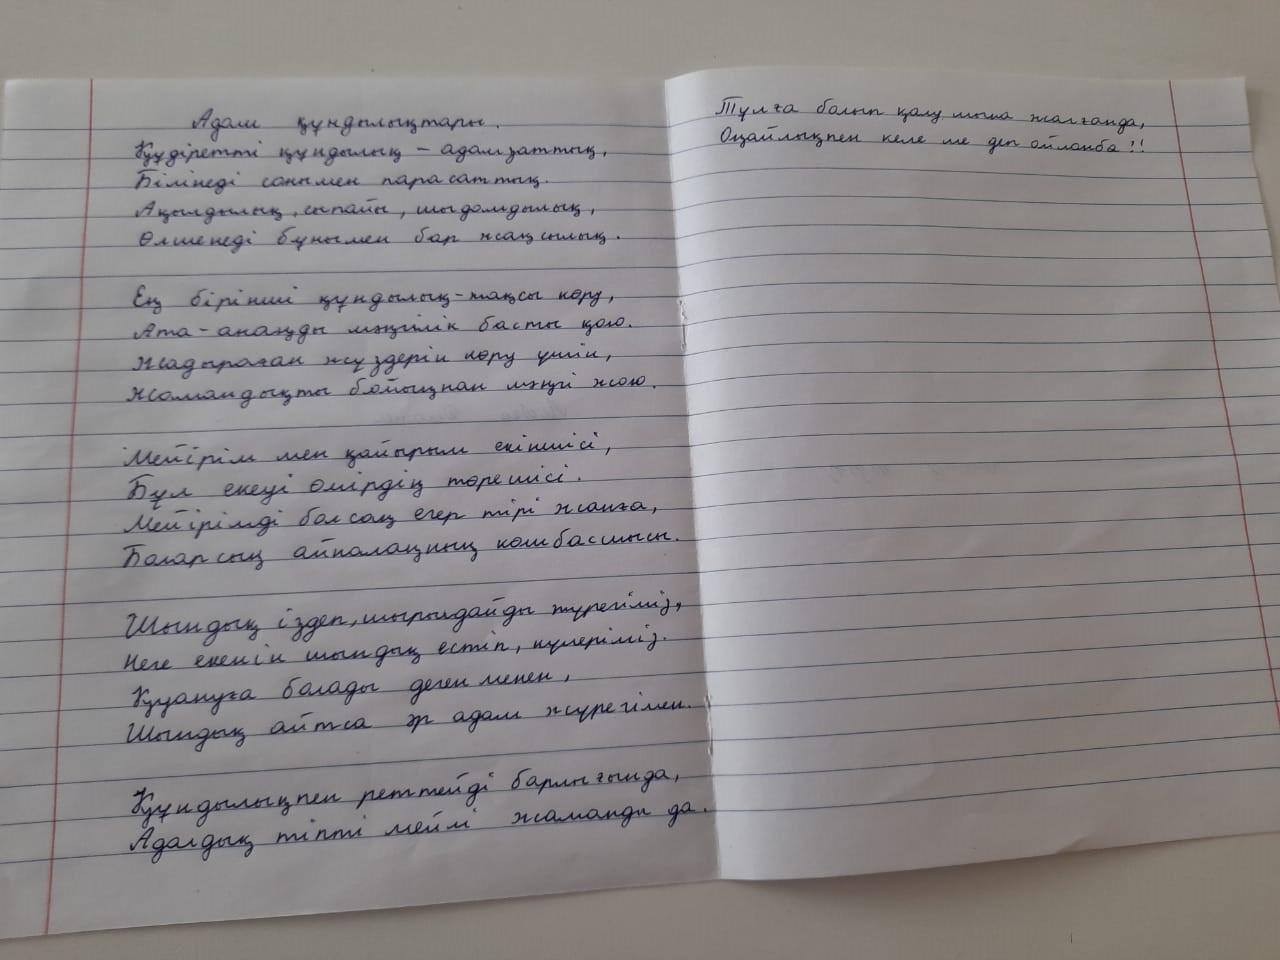 Адам құндылықтары.
Құдіретті құндылық - адамзаттық,
Білінеді сонымен парасаттық.
Ақылдылық, сыпайы, шыдамдылық,
Өлшенеді бұнымен бар жақсылық.
Ең бірінші құндылық-жақсы көру,
Ата-анаңды мәңгілік басты қою.
Жадыраған жүздерін көру үшін,
Жамандықты бойыңнан мәңгі жою.
Мейірім мен қайырым екіншісі,
Бұл екеуі өмірдің төрешісі.
Мейірімді болсаң егер тірі жанға,
Боларсың айналаңның қолбасшысы.
Шындық іздеп, шырылдайды жүрегіміз,
Неге екенін шындық естіп, күлерміз.
Қуануға болады дегенменен,
Шындық айтса әр адам жүрегімен.
Құндылықпен реттейді барлығында,
Адалдық тіпті мейлі жаманды да.
Тұлға болып қалу мына жалғанда,
Оңайлықпен келе ме деп ойланба!!